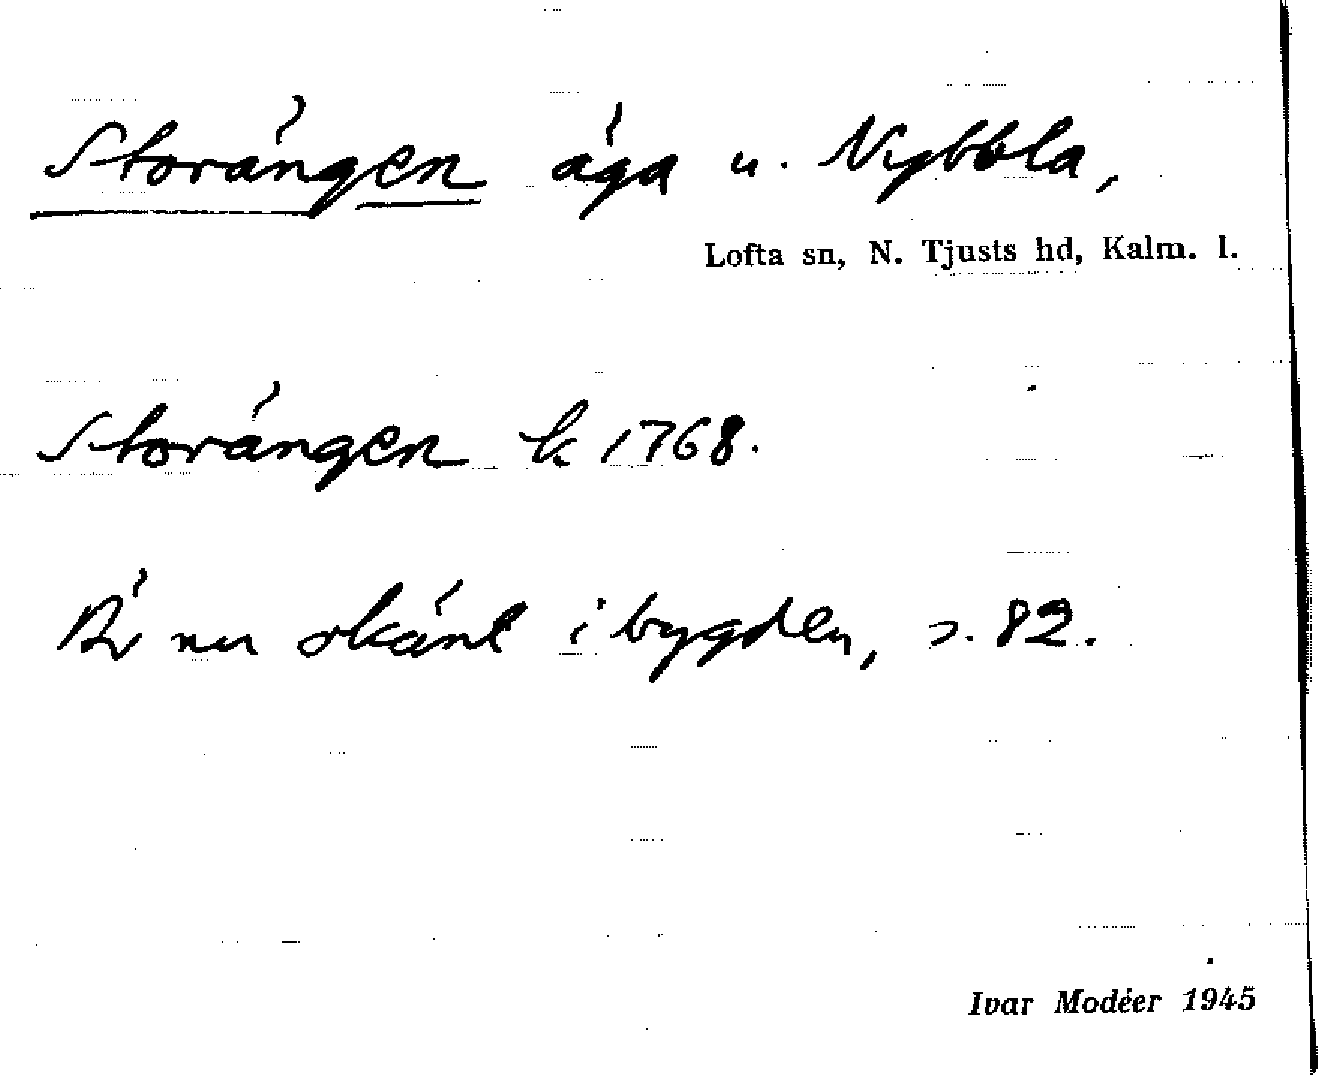 Storängen äga u. Nybbla,
Lofta sn, N. Tjusts hd, Kalm. l.
Storängen k 1768.
Är nu okänt i bygden, s. 82.
Ivar Modéer 1945